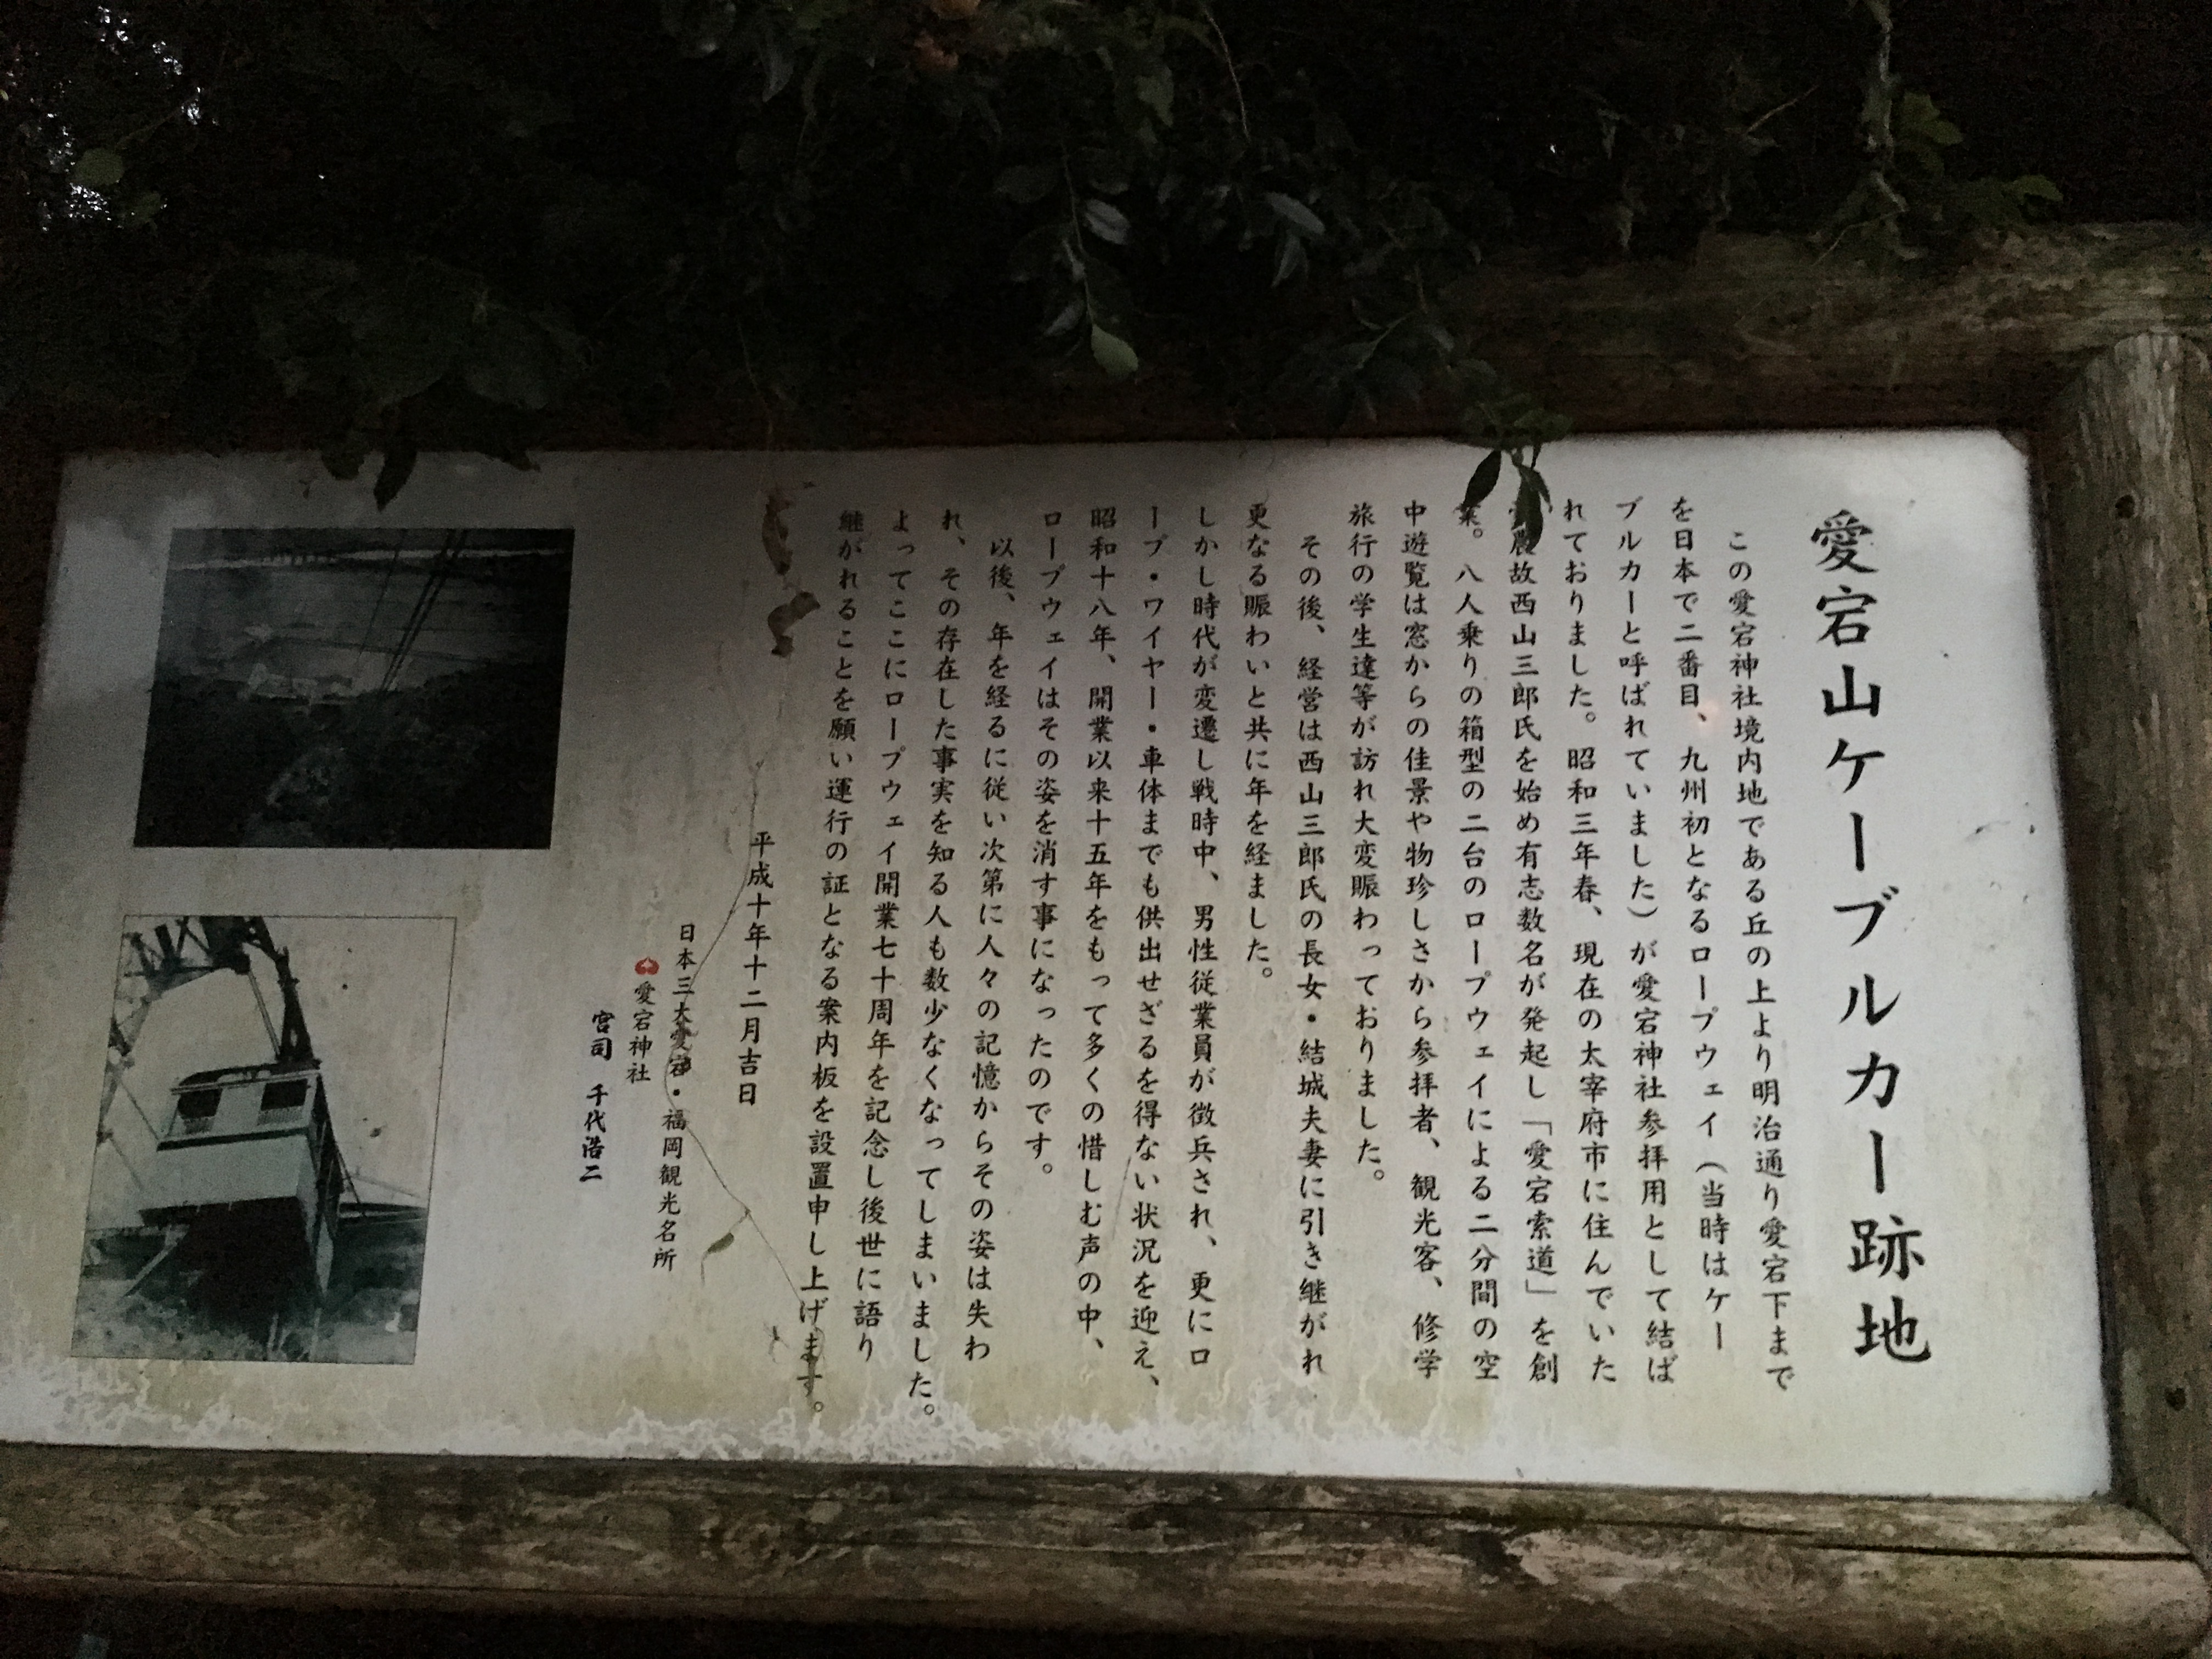 愛宕山ケーブルカー跡地
この愛宕神社境内地である丘の上より明治通り愛宕下まで
を日本で二番目、九州初となるロープウェイ（当時はケー
ブルカーと呼ばれていました）が愛宕神社参拝用として結ば
れておりました。昭和三年春、現在の太宰府市に住んでいた
農故西山三郎氏を始め有志数名が発起し「愛宕索道」を創
業。八人乗りの箱型の二台のロープウェイによる二分間の空
中遊覧は窓からの佳景や物珍しさから参拝者、観光客、修学
旅行の学生達等が訪れ大変賑わっておりました。
その後、経営は西山三郎氏の長女・結城夫妻に引き継がれ
更なる賑わいと共に年を経ました。
しかし時代が変遷し戦時中、男性従業員が徴兵され、更にロ
ープ・ワイヤー・車体までも供出せざるを得ない状況を迎え、
昭和十八年、開業以来十五年をもって多くの惜しむ声の中、
ロープウェイはその姿を消す事になったのです。
以後、年を経るに従い次第に人々の記憶からその姿は失わ
れ、その存在した事実を知る人も数少なくなってしまいました。
よってここにロープウェイ開業七十周年を記念し後世に語り
継がれることを願い運行の証となる案内板を設置申し上げます。
平成十年十二月吉日
日本三大愛宕・福岡観光名所
愛宕神社
宮司 千代浩二